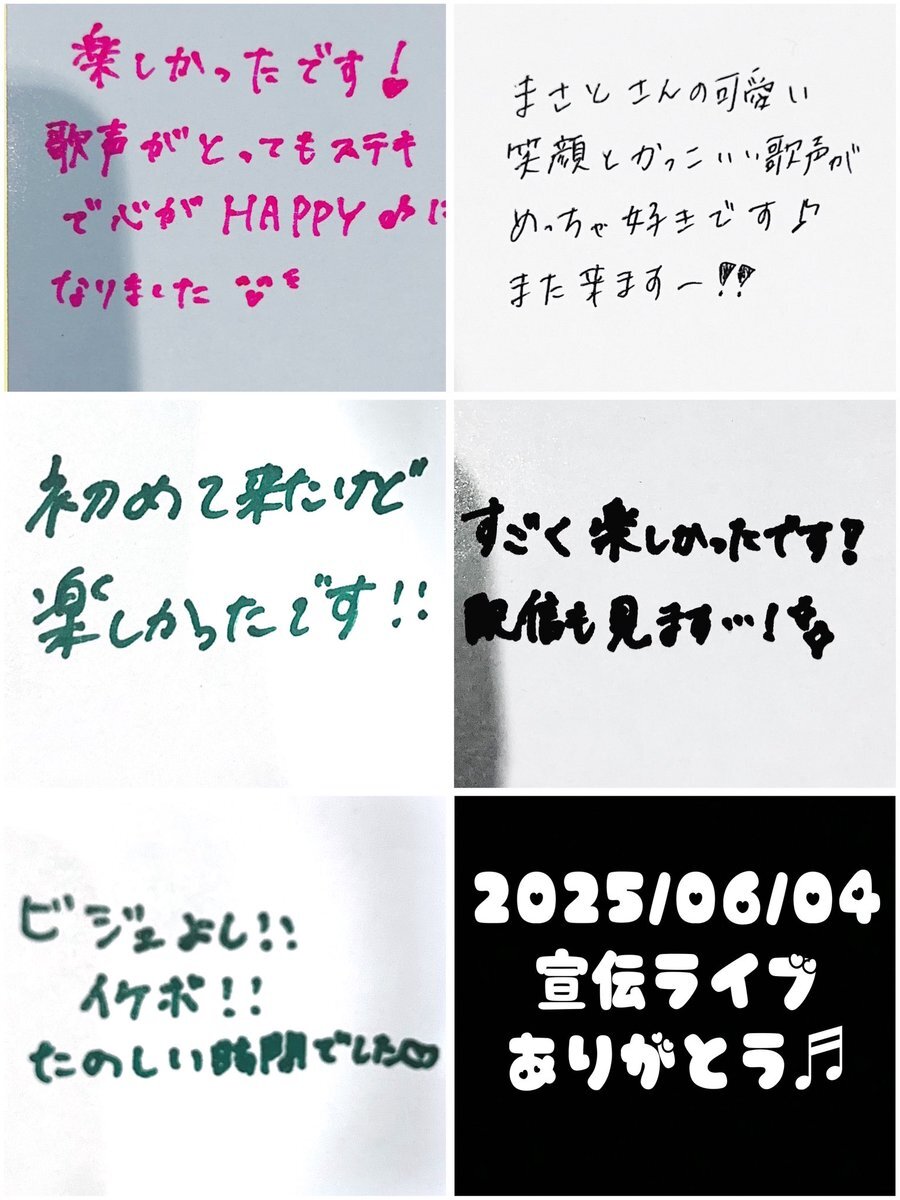 楽しかったです!
歌声がとってもステキ
で心がHAPPY♪に
なりました
まさとさんの可愛い
笑顔とかっこいい歌声が
めっちゃ好きです♪
また来ますー!!
初めて来たけど
楽しかったです!!
すごく楽しかったです!
配信も見ます…!
ビジュよし!!
イケボ!!
たのしい時間でした♡
2025/06/04
宣伝ライブ
ありがとう♬